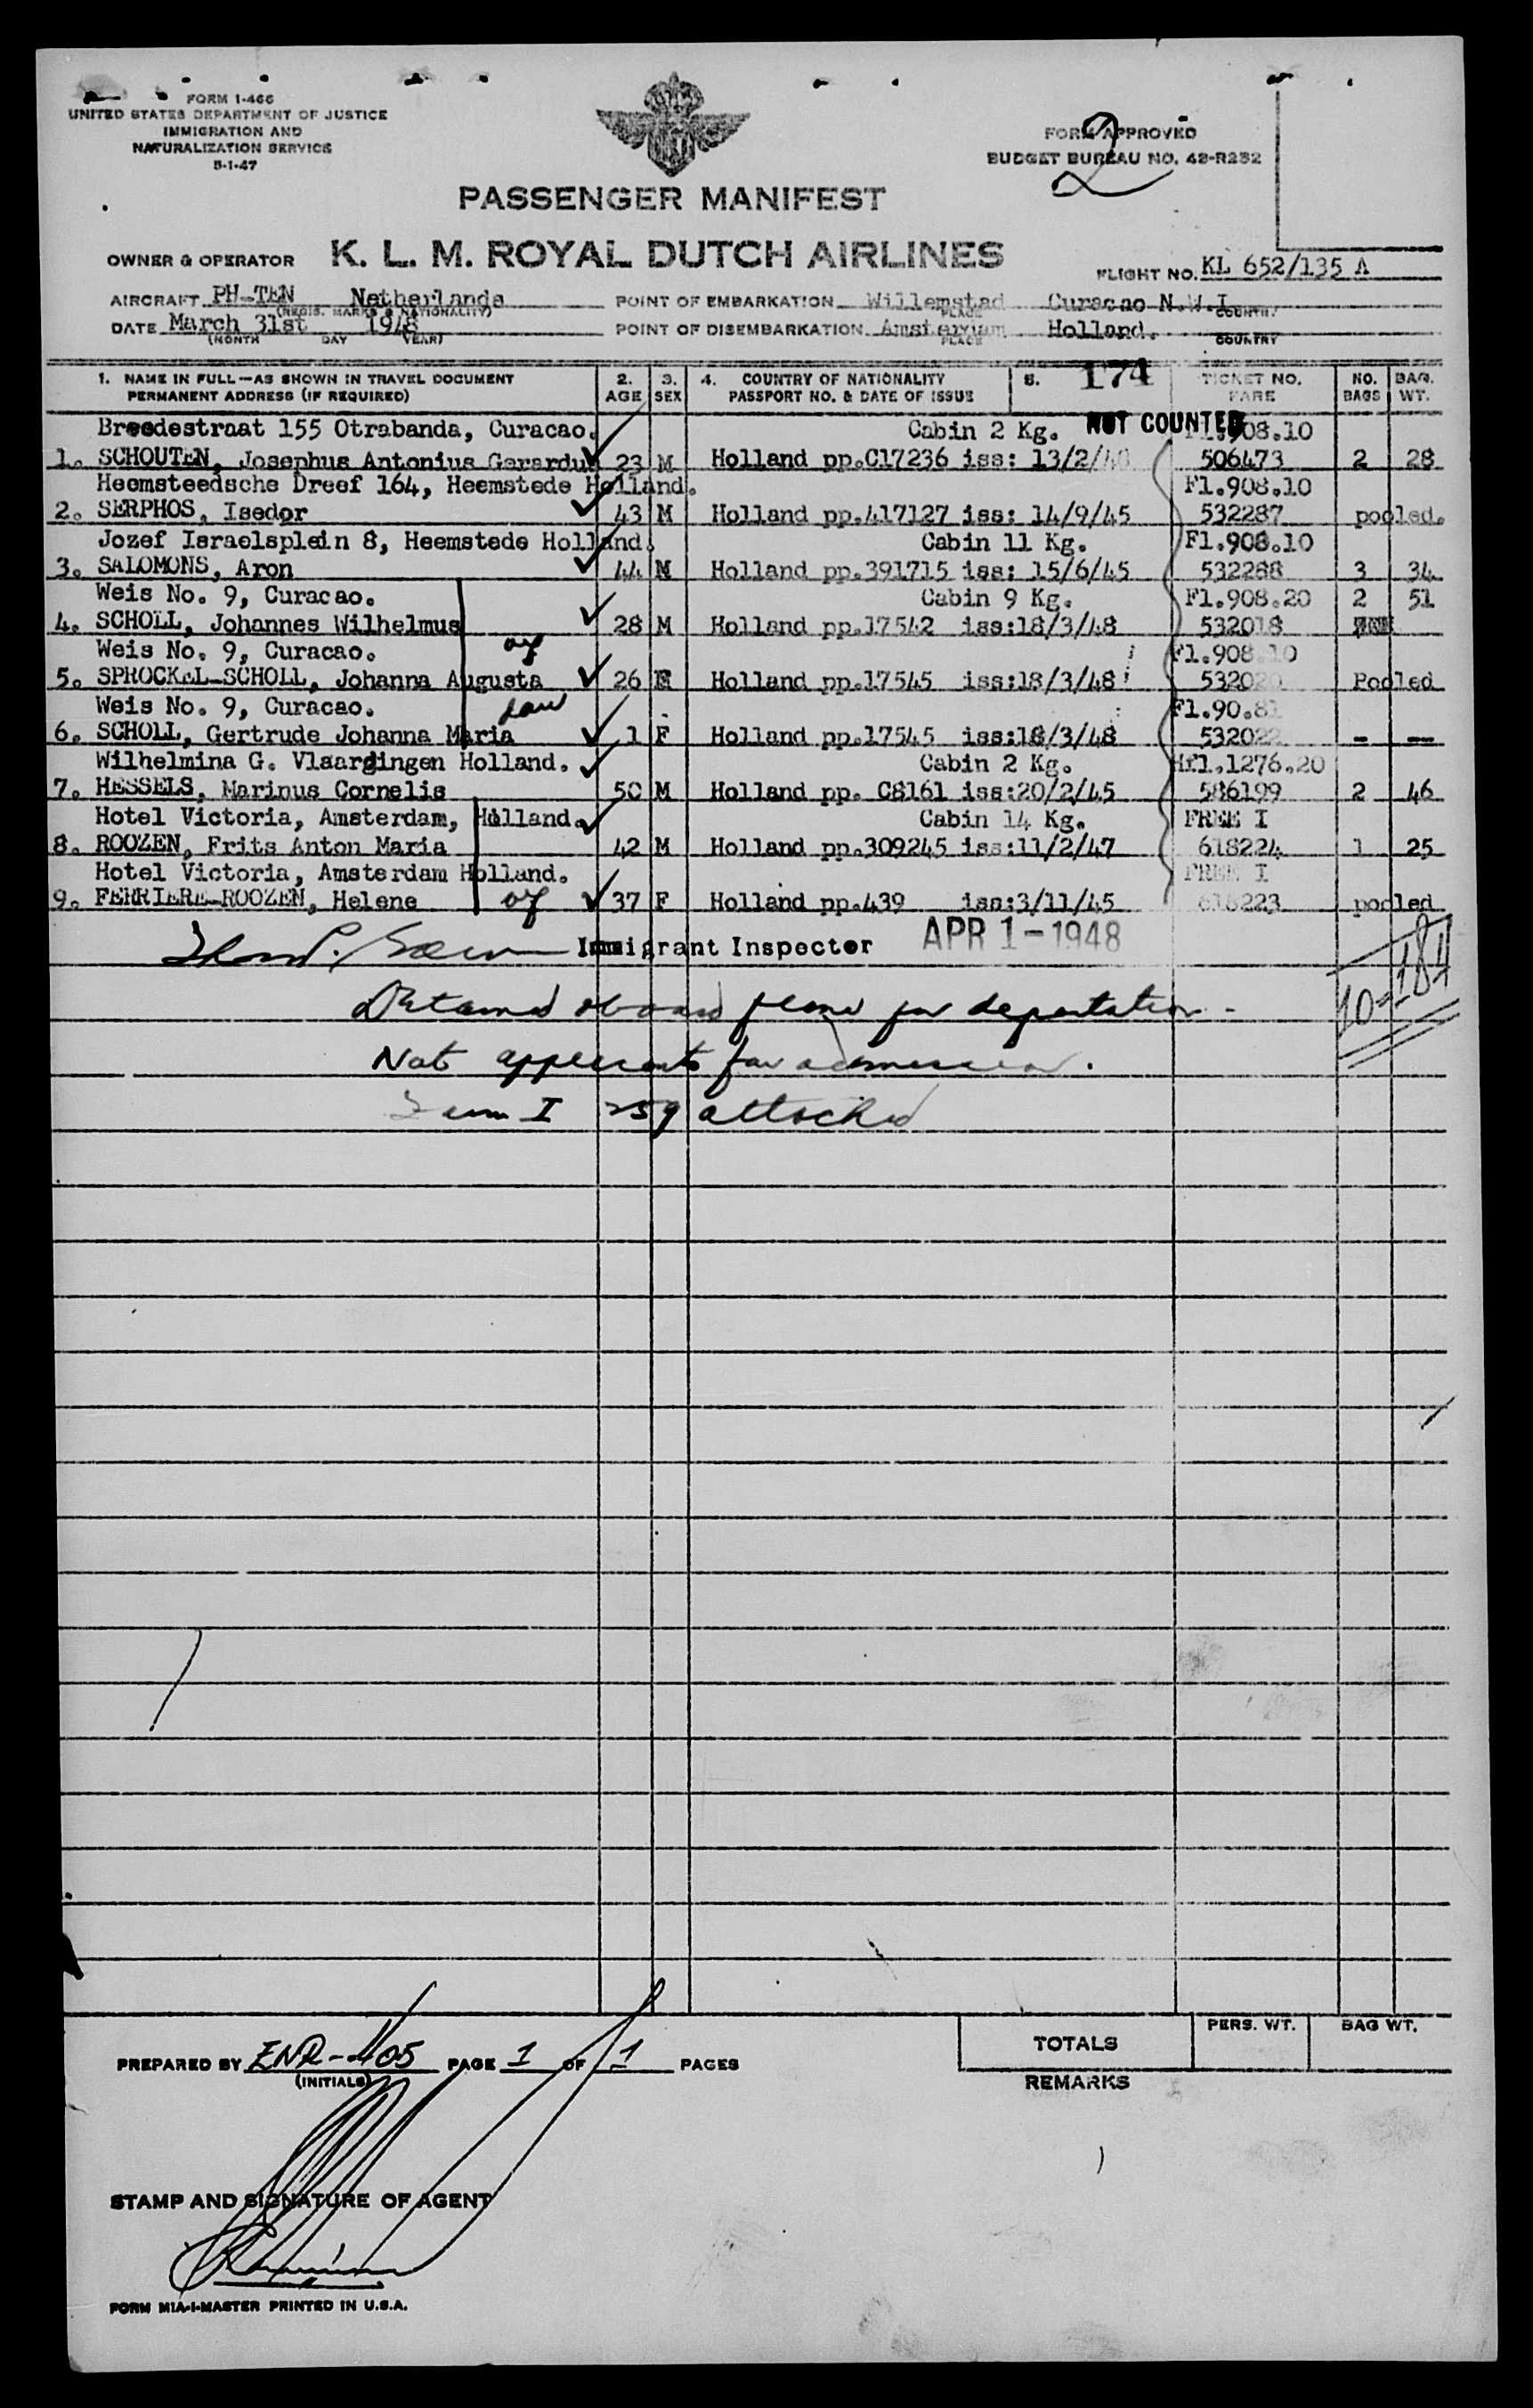 FORM I-466
UNITED STATES DEPARTMENT OF JUSTICE
IMMIGRATION AND
NATURALIZATION SERVICE
5-1-47
FORM APPROVED
BUDGET BUREAU NO. 43-R252
2
PASSENGER MANIFEST
OWNER & OPERATOR K. L. M. ROYAL DUTCH AIRLINES
FLIGHT NO. KL 652/135 A
AIRCRAFT PH-TEN Netherlands POINT OF EMBARKATION Willemstad Curacao N.W.I.
(REGIS. MARKS & NATIONALITY) PLACE COUNTRY
DATE March 31st 1948 POINT OF DISEMBARKATION Amsterdam Holland.
(MONTH DAY YEAR) PLACE COUNTRY
1. NAME IN FULL—AS SHOWN IN TRAVEL DOCUMENT 2. 3. 4. COUNTRY OF NATIONALITY 5. 174 TICKET NO. NO. BAG.
PERMANENT ADDRESS (IF REQUIRED) AGE SEX PASSPORT NO. & DATE OF ISSUE FARE BAGS WT.
NOT COUNTED
Breedestraat 155 Otrabanda, Curacao. Cabin 2 Kg. Fl.908.10
1. SCHOUTEN, Josephus Antonius Gerardus 23 M Holland pp.C17236 iss: 13/2/48 506473 2 28
Heemsteedsche Dreef 164, Heemstede Holland. Fl.908.10
2. SERPHOS, Isedor 43 M Holland pp.417127 iss: 14/9/45 532287 pooled.
Jozef Israelsplein 8, Heemstede Holland. Cabin 11 Kg. Fl.908.10
3. SALOMONS, Aron 44 M Holland pp.391715 iss: 15/6/45 532288 3 34
Weis No. 9, Curacao. Cabin 9 Kg. Fl.908.20 2 51
4. SCHOLL, Johannes Wilhelmus 28 M Holland pp.17542 iss:18/3/48 532018
Weis No. 9, Curacao. Fl.908.10
5. SPROCKEL-SCHOLL, Johanna Augusta 26 F Holland pp.17545 iss:18/3/48 532020 Pooled
Weis No. 9, Curacao. Fl.90.81
6. SCHOLL, Gertrude Johanna Maria 1 F Holland pp.17545 iss:18/3/48 532022 - --
Wilhelmina G. Vlaardingen Holland. Cabin 2 Kg. Hfl.1276.20
7. HESSELS, Marinus Cornelis 50 M Holland pp. C8161 iss:20/2/45 586199 2 46
Hotel Victoria, Amsterdam, Holland. Cabin 14 Kg. FREE I
8. ROOZEN, Frits Anton Maria 42 M Holland pp.309245 iss:11/2/47 618224 1 25
Hotel Victoria, Amsterdam Holland. FREE I
9. FERRIERE-ROOZEN, Helene 37 F Holland pp.439 iss:3/11/45 618223 pooled
Immigrant Inspector APR 1-1948
10 = 184
Detained aboard plane for deportation -
Not applicants for admission.
I 259 attached
PREPARED BY ENR-405 PAGE 1 OF 1 PAGES
(INITIALS)
TOTALS PERS. WT. BAG WT.
REMARKS
STAMP AND SIGNATURE OF AGENT
FORM MIA-I-MASTER PRINTED IN U.S.A.